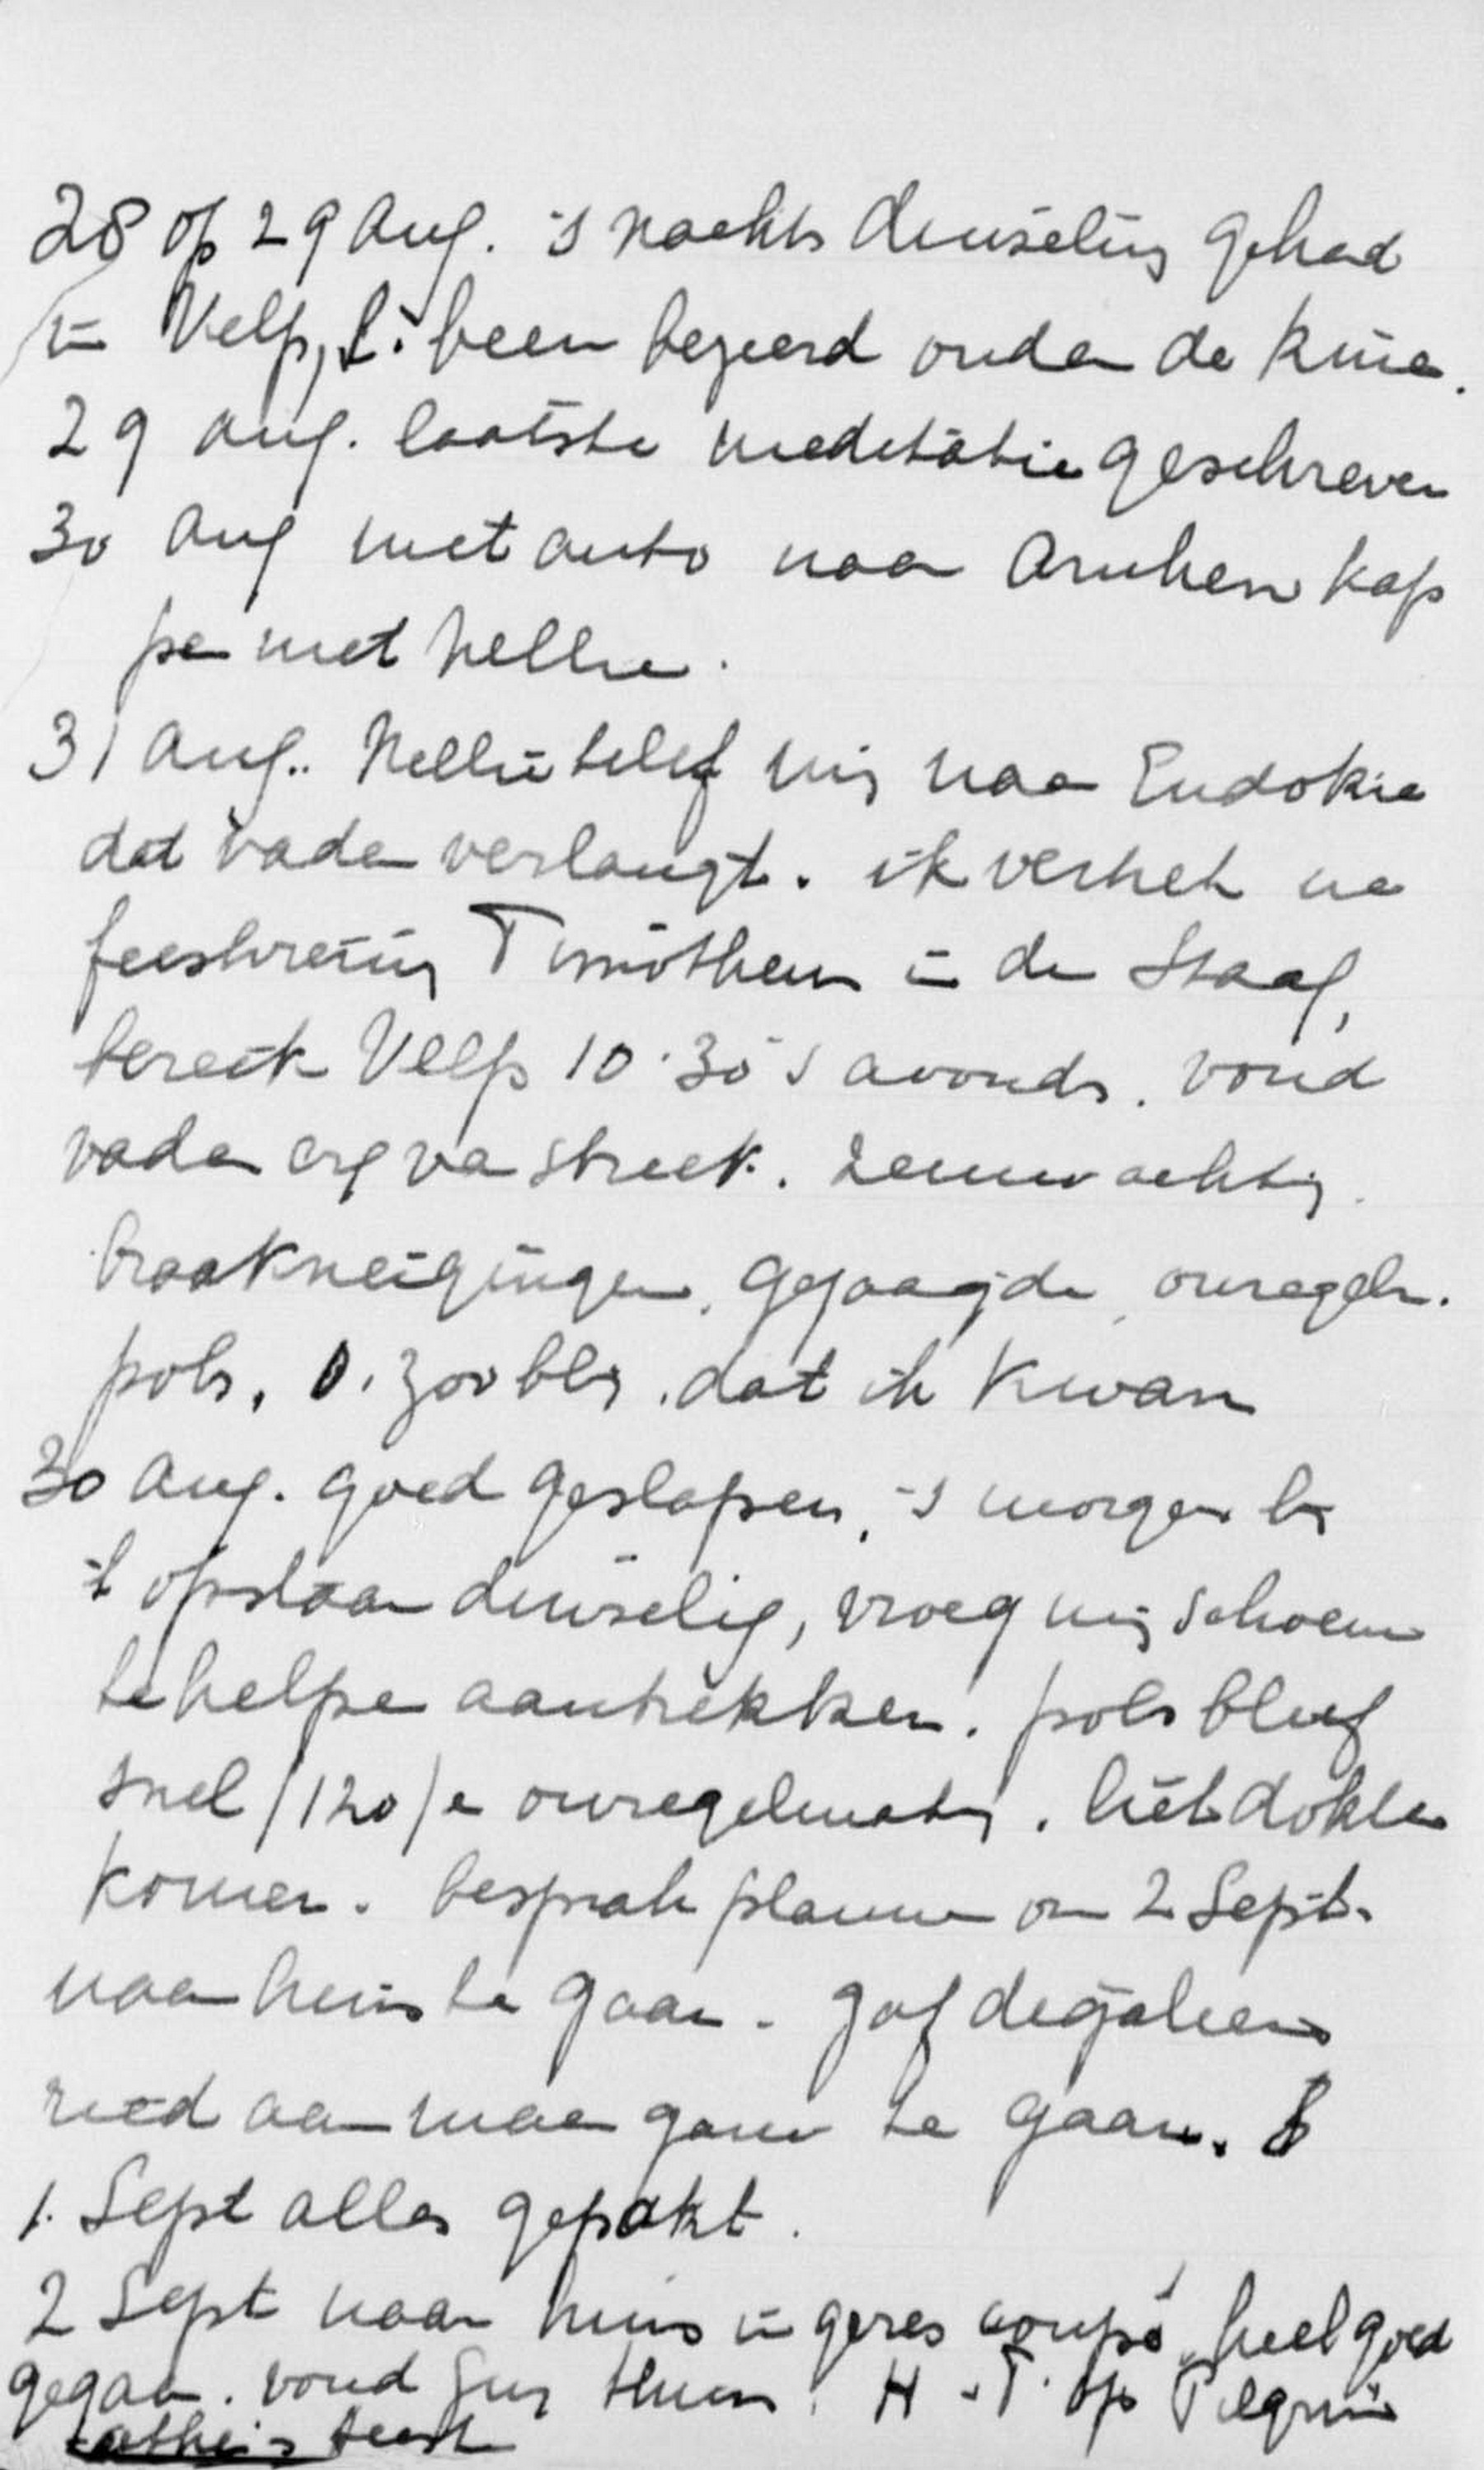 28 op 29 Aug. 's nachts duizeling gehad
in Velp, l. been bezeerd onder de knie.
29 aug. laatste meditatie geschreven
30 aug met auto naar Arnhem kap
per met Nellie.
31 aug.. Nellie telef mij naar Eudokia
dat vader verlangt. ik vertrek na
feestviering Timotheus in de Staaf,
bereik Velp 10.30 's avonds. vond
vader erg van streek. zenuwachtig.
braakneigingen, gejaagde, onregelm.
pols. zoo blij dat ik kwam
30 aug. goed geslapen, 's morgens bij
't opstaan duizelig, vroeg mij schoenen
te helpen aantrekken. pols bleef
snel /120/ en onregelmatig. liet dokter
komen. besprak plannen om 2 Sept.
naar huis te gaan. gaf digaleen
ried aan maar gauw te gaan.
1. Sept alles gepakt.
2 Sept naar huis in geres coupé, heel goed
gegaan. vond Gus thuis. H. T. op Pelgrim